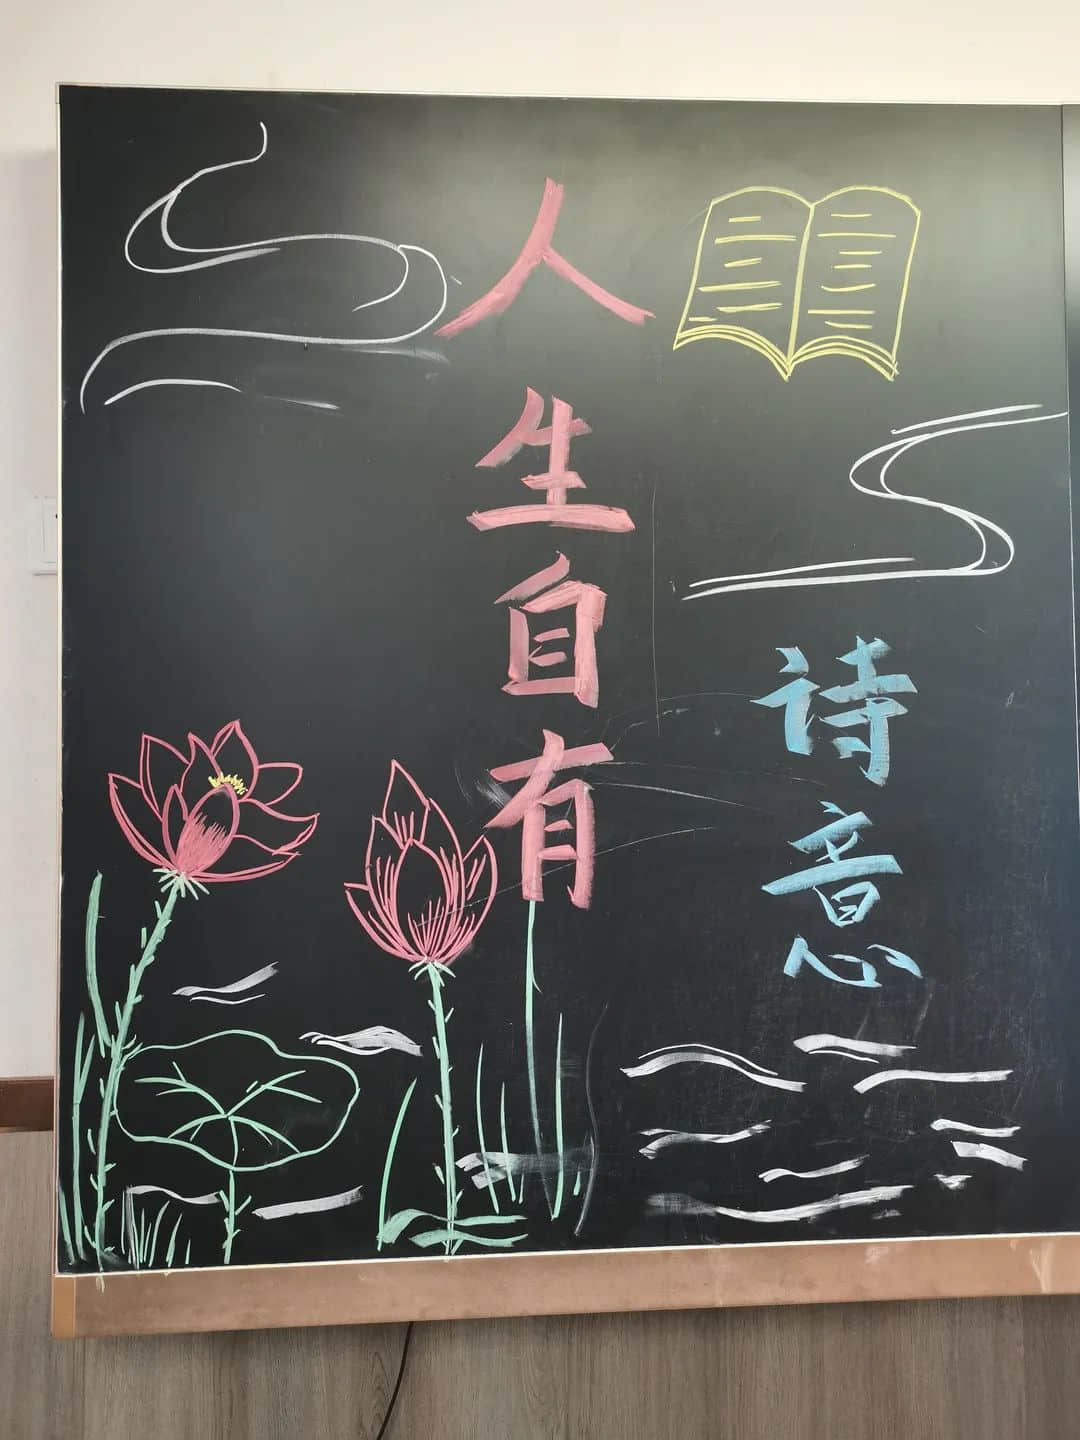 人生自有
诗意